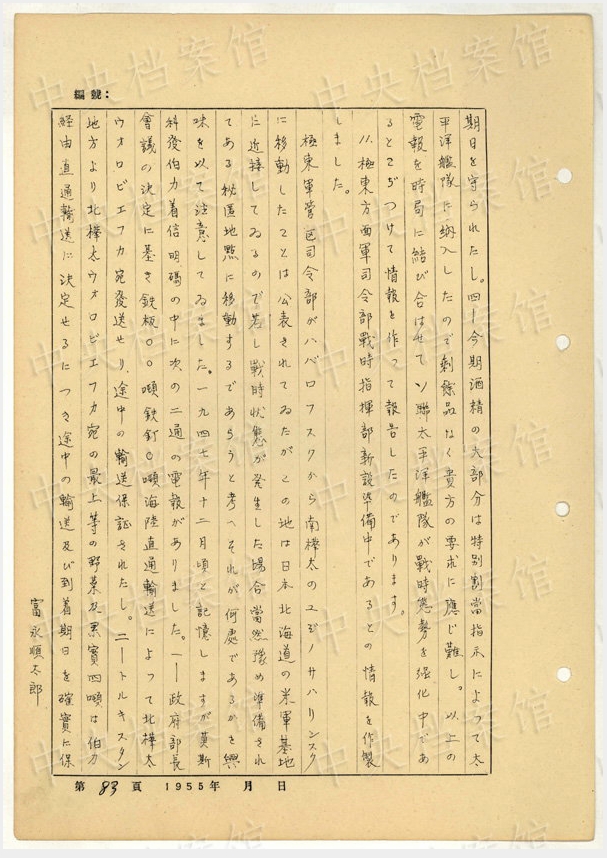 編號：
期日を守られたし。四一今期酒精の大部分は特別割當指示によって太
平洋艦隊に納入したので剰餘品なく貴方の要求に應じ難し。以上の
電報を時局に結び合はせてソ聯太平洋艦隊が戰時態勢を强化中であ
るとこぢつけて情報を作って報告したのであります。
11.極東方面軍司令部戰時指揮部新設準備中であるとの情報を作製
しました。
極東軍管区司令部がハバロフスクから南樺太のユジノサハリンスク
に移動したことは公表されてゐたがこの地は日本北海道の米軍基地
に近接してゐるので若し戰時状態が發生した場合當然豫め準備され
てある秘匿地點に移動するであらうと考へそれが何處であるかを興
味を以て注意してゐました。一九四七年十二月頃と記憶しますが莫斯
科發伯力着信明碼の中に次の二通の電報がありました。一一政府部長
會議の決定に基き鉄板〇〇噸鉄釘〇噸海陸直通輸送によって北樺太
ウオロビエフカ宛發送せり、途中の輸送保証されたし。二一トルキスタン
地方より北樺太ウオロビエフカ宛の最上等の野菜及果實四噸は伯力
経由直通輸送に決定せるにつき途中の輸送及び到着期日を確實に保
富永順太郎
第83頁 1955年 月 日
中央档案馆